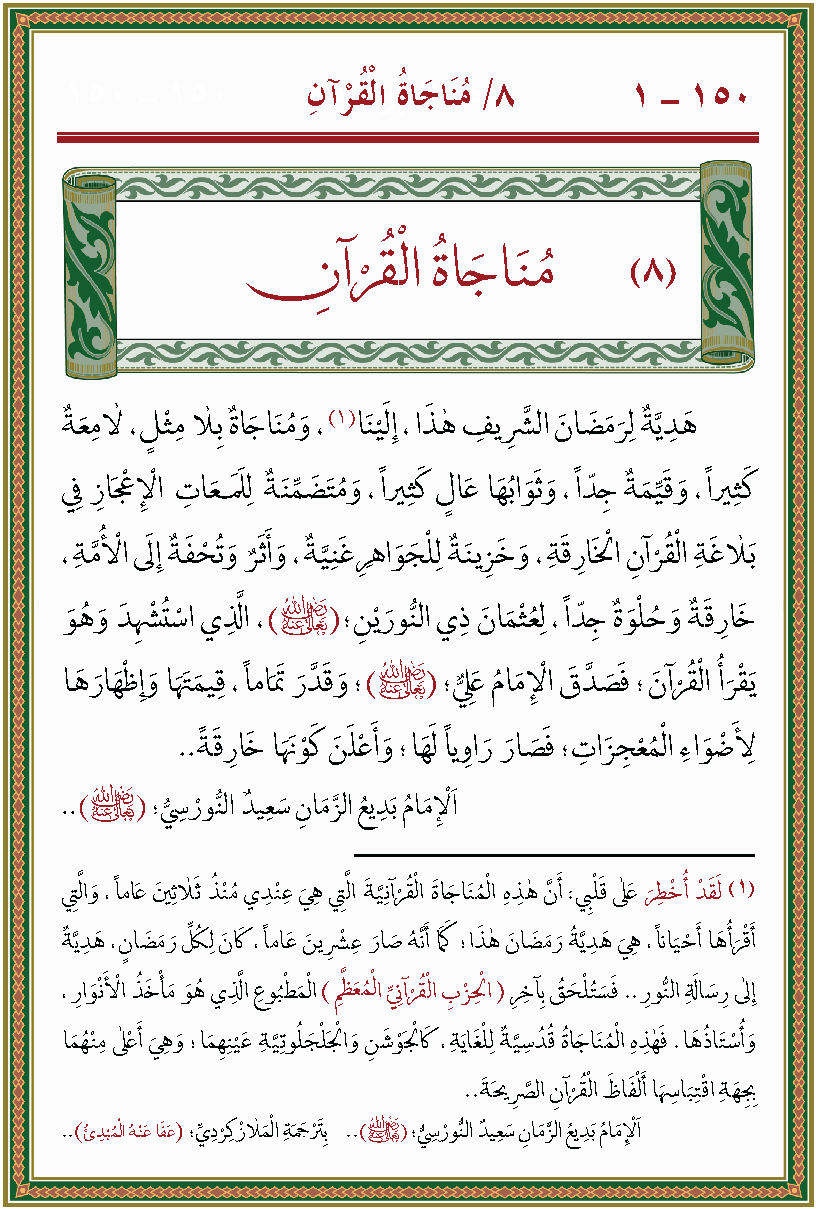 ١٥٠ – ١ ٨/ مُنَاجَاةُ الْقُرْآنِ
(٨) مُنَاجَاةُ الْقُرْآنِ
هَدِيَّةٌ لِرَمَضَانَ الشَّرِيفِ هٰذَا ، إِلَيْنَا(١) ، وَمُنَاجَاةٌ بِلٰا مِثْلٍ ، لٰامِعَةٌ
كَثِيراً ، وَقَيِّمَةٌ جِدّاً ، وَثَوَابُهَا عَالٍ كَثِيراً ، وَمُتَضَمِّنَةٌ لِلَمَـعَاتِ الْإِعْجَازِ فِي
بَلٰاغَةِ الْقُرْآنِ الْخَارِقَةِ ، وَخَزِينَةٌ لِلْجَوَاهِرِ غَنِيَّةٌ ، وَأَثَرٌ وَتُحْفَةٌ إِلَى الْأُمَّةِ ،
خَارِقَةٌ وَحُلْوَةٌ جِدّاً ، لِعُثْمَانَ ذِي النُّورَيْنِ؛ (رَضِيَ اللهُ تَعَالٰى عَنْهُ) ، الَّذِي اسْتُشْهِدَ وَهُوَ
يَقْرَأُ الْقُرْآنَ ؛ فَصَدَّقَ الْإِمَامُ عَلِيٌّ؛ (رَضِيَ اللهُ تَعَالٰى عَنْهُ) ؛ وَقَدَّرَ تَمَاماً ، قِيمَتَهَا وَإِظْهَارَهَا
لِأَضْوَاءِ الْمُعْجِزَاتِ ؛ فَصَارَ رَاوِياً لَهَا ؛ وَأَعْلَنَ كَوْنَهَا خَارِقَةً..
اَلْإِمَامُ بَدِيعُ الزَّمَانِ سَعِيدٌ النُّورْسِيُّ؛ (رَضِيَ اللهُ تَعَالٰى عَنْهُ) ..
(١) لَقَدْ أُخْطِرَ عَلٰى قَلْبِي: أَنَّ هٰذِهِ الْمُنَاجَاةَ الْقُرْآنِيَّةَ الَّتِي هِيَ عِنْدِي مُنْذُ ثَلٰاثِينَ عَاماً ، وَالَّتِي
أَقْرَأُهَا أَحْيَاناً ، هِيَ هَدِيَّةُ رَمَضَانَ هٰذَا ؛ كَمَا أَنَّهُ صَارَ عِشْرِينَ عَاماً ، كَانَ لِكُلِّ رَمَضَانٍ ، هَدِيَّةٌ
إِلٰى رِسَالَةِ النُّورِ .. فَسَتُلْحَقُ بِآخِرِ ( الْحِزْبِ الْقُرْآنِيِّ الْمُعَظَّمِ ) الْمَطْبُوعِ الَّذِي هُوَ مَأْخَذُ الْأَنْوَارِ ،
وَأُسْتَاذُهَا . فَهٰذِهِ الْمُنَاجَاةُ قُدُسِيَّةٌ لِلْغَايَةِ ، كَالْجَوْشَنِ وَالْجَلْجَلُوتِيَّةِ عَيْنِهِمَا ؛ وَهِيَ أَعْلٰى مِنْهُمَا
بِجِهَةِ اقْتِبَاسِهَا أَلْفَاظَ الْقُرْآنِ الصَّرِيحَةَ..
اَلْإِمَامُ بَدِيعُ الزَّمَانِ سَعِيدٌ النُّورْسِيُّ؛ (رَضِيَ اللهُ تَعَالٰى عَنْهُ) .. بِتَرْجَمَةِ الْمَلٰازْكِرْدِيِّ؛ (عَفَا عَنْهُ الْمُبْدِئُ)..